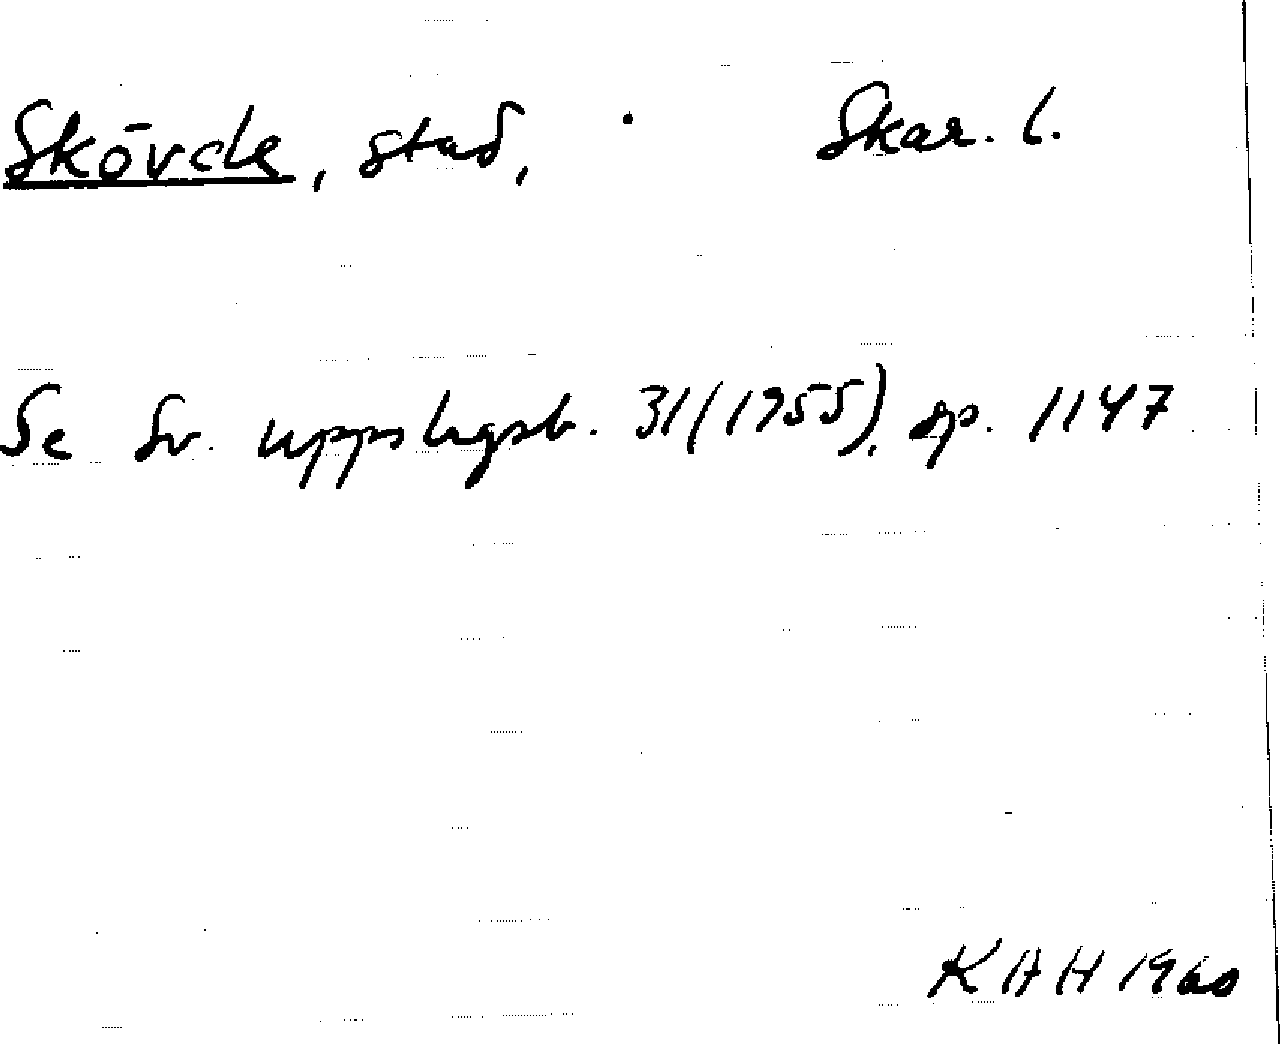 Skövde, stad, Skar. l.
Se Sv. uppslagsb. 31 (1955), sp. 1147
KAH 1960